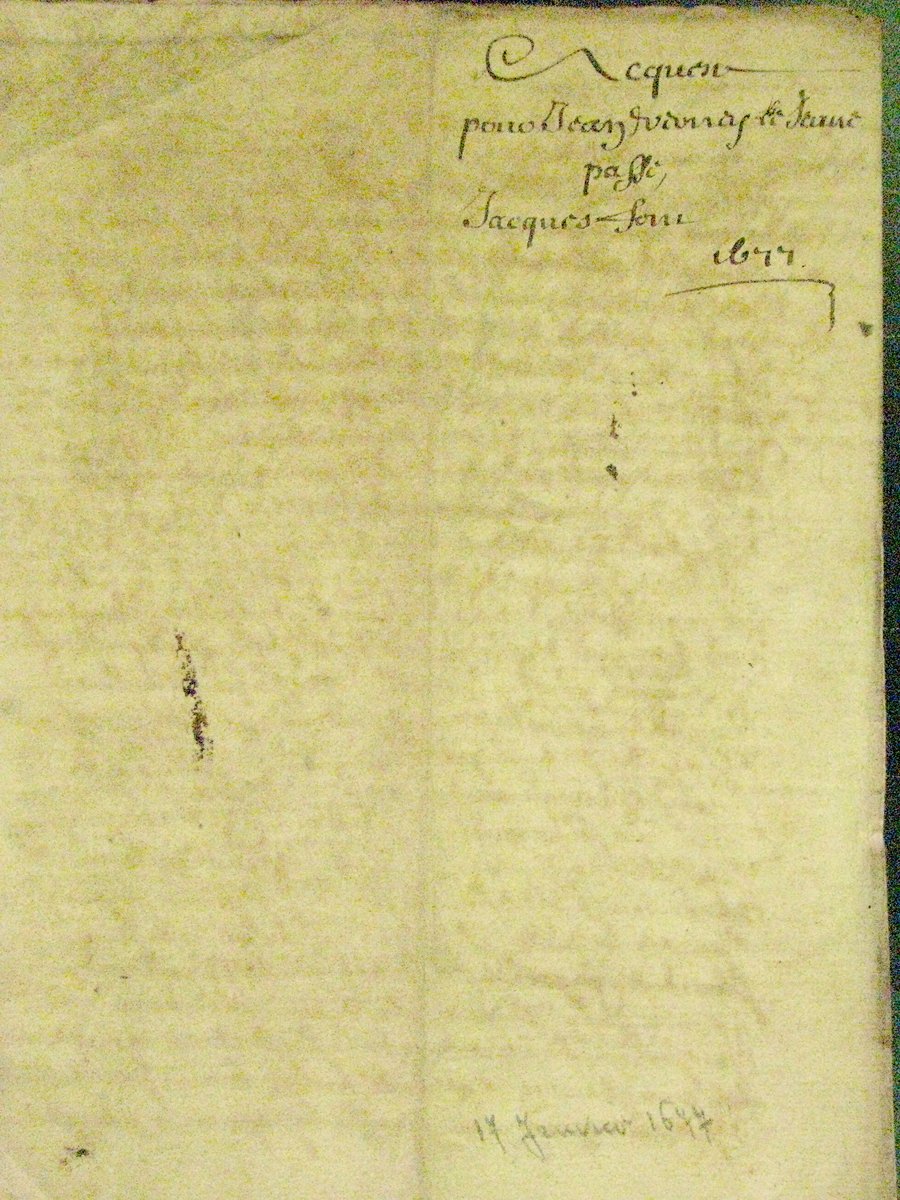 Acquest
pour Jean le Jeune
passé,
Jacques
1677.
17 Janvier 1677